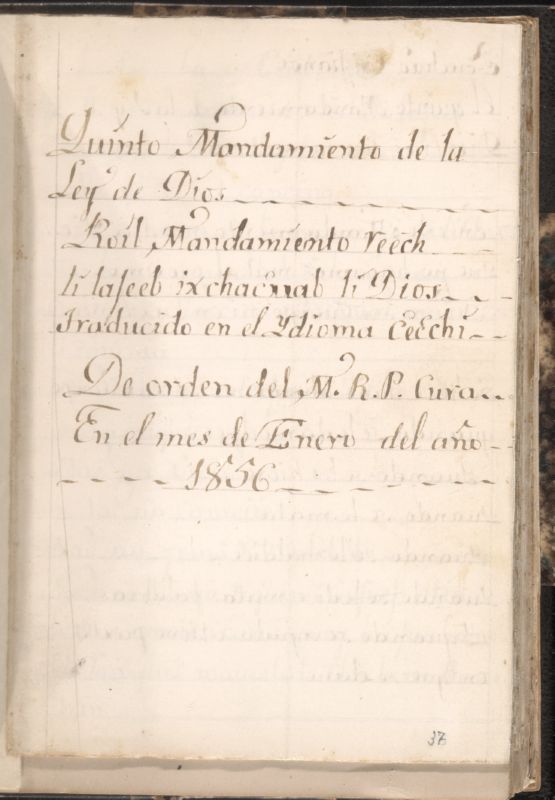 Quinto Mandamiento de la
Ley de Dios
Roil Mandamiento reech
li taseeb ixchacrrab li Dios
Traducido en el Ydioma Ceechi
De orden del M. R. P. Cura
En el mes de Enero del año
1856
37